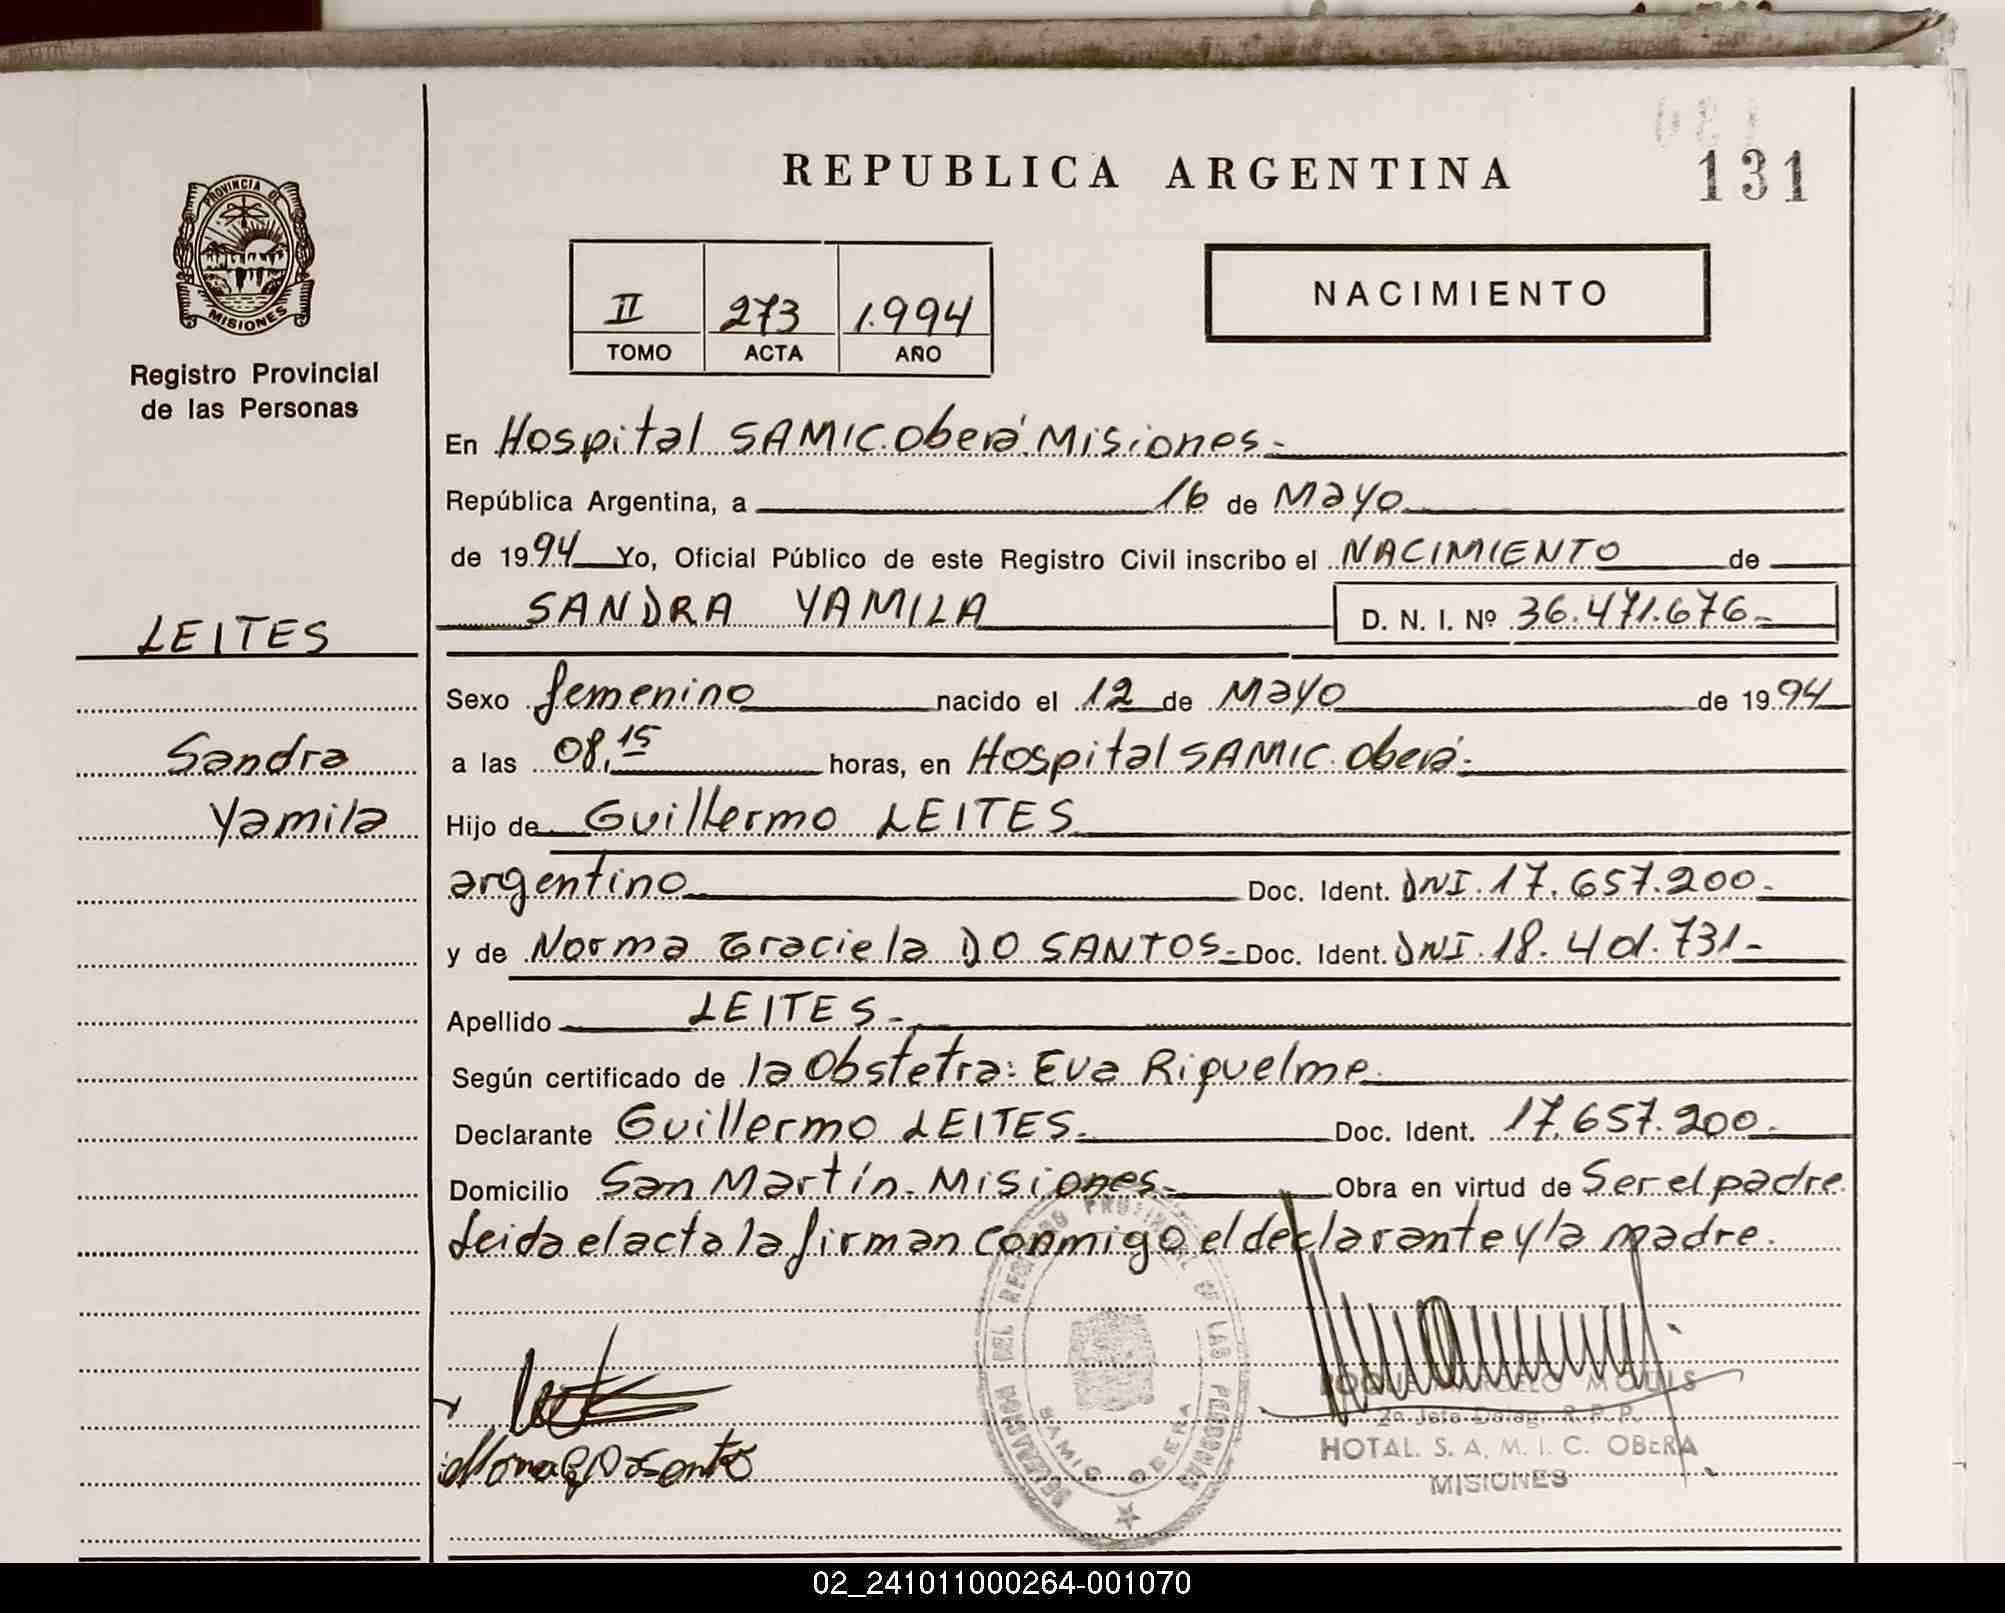 REPUBLICA ARGENTINA
131
PROVINCIA DE
MISIONES
Registro Provincial
de las Personas
II 273 1.994
TOMO ACTA AÑO
NACIMIENTO
En Hospital SAMIC. Oberá. Misiones.-
República Argentina, a 16 de Mayo
de 1994 Yo, Oficial Público de este Registro Civil inscribo el NACIMIENTO de
SANDRA YAMILA D. N. I. Nº 36.471.676.-
LEITES
Sexo femenino nacido el 12 de Mayo de 1994
Sandra
a las 08,15 horas, en Hospital SAMIC. Oberá.-
Yamila
Hijo de Guillermo LEITES
argentino Doc. Ident. DNI. 17.657.200.-
y de Norma Graciela DO SANTOS.- Doc. Ident. DNI. 18.401.731.-
Apellido LEITES.-
Según certificado de la Obstetra: Eva Riquelme.
Declarante Guillermo LEITES. Doc. Ident. 17.657.200.-
Domicilio San Martín. Misiones.- Obra en virtud de Ser el padre.
Leida el acta la firman conmigo el declarante y la madre.
DELEGACION DEL REGISTRO PROVINCIAL DE LAS PERSONAS
SAMIC OBERA
MARCELO
2º Jefe Deleg. R.P.P.
HOTAL. S. A. M. I. C. OBERA
MISIONES
02_241011000264-001070